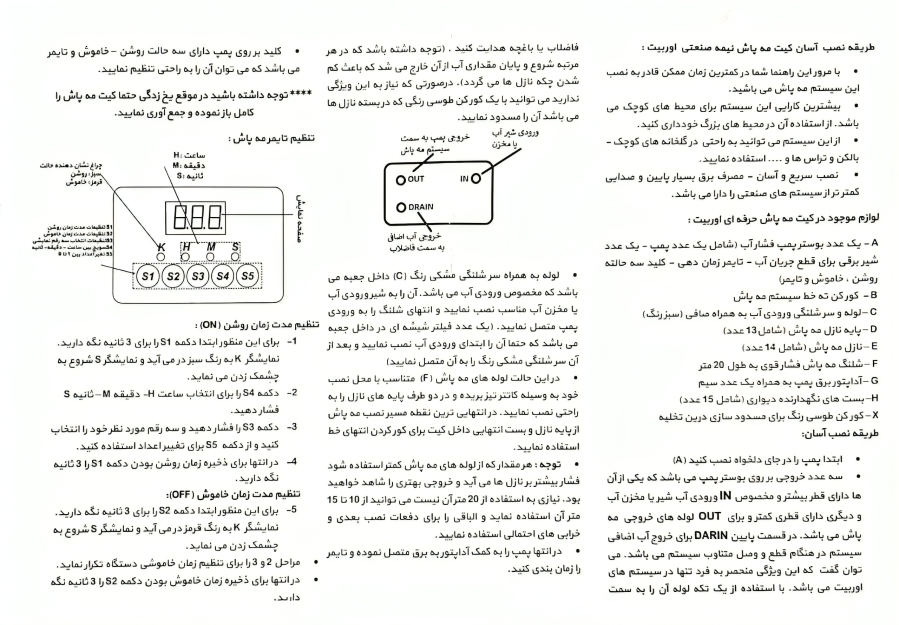 طریقه نصب آسان کیت مه پاش نیمه صنعتی اوربیت :
• با مرور این راهنما شما در کمترین زمان ممکن قادر به نصب
این سیستم مه پاش می باشید.
• بیشترین کارایی این سیستم برای محیط های کوچک می
باشد. از استفاده آن در محیط های بزرگ خودداری کنید.
• از این سیستم می توانید به راحتی در گلخانه های کوچک –
بالکن و تراس ها و .... استفاده نمایید.
• نصب سریع و آسان – مصرف برق بسیار پایین و صدایی
کمتر تر از سیستم های صنعتی را دارا می باشد.
لوازم موجود در کیت مه پاش حرفه ای اوربیت :
A – یک عدد بوستر پمپ فشار آب (شامل یک عدد پمپ – یک عدد
شیر برقی برای قطع جریان آب – تایمر زمان دهی – کلید سه حالته
روشن ، خاموش و تایمر)
B – کور کن ته خط سیستم مه پاش
C – لوله و سر شلنگی ورودی آب به همراه صافی (سبز رنگ)
D – پایه نازل مه پاش (شامل 13 عدد)
E – نازل مه پاش (شامل 14 عدد)
F – شلنگ مه پاش فشار قوی به طول 20 متر
G – آداپتور برق پمپ به همراه یک عدد سیم
H – بست های نگهدارنده دیواری (شامل 15 عدد)
X – کور کن طوسی رنگ برای مسدود سازی درین تخلیه
طریقه نصب آسان:
• ابتدا پمپ را در جای دلخواه نصب کنید (A)
• سه عدد خروجی بر روی بوستر پمپ می باشد که یکی از آن
ها دارای قطر بیشتر و مخصوص IN ورودی آب شیر یا مخزن آب
و دیگری دارای قطری کمتر و برای OUT لوله های خروجی مه
پاش می باشد. در قسمت پایین DARIN برای خروج آب اضافی
سیستم در هنگام قطع و وصل متناوب سیستم می باشد. می
توان گفت که این ویژگی منحصر به فرد تنها در سیستم های
اوربیت می باشد. با استفاده از یک تکه لوله آن را به سمت
فاضلاب یا باغچه هدایت کنید . (توجه داشته باشد که در هر
مرتبه شروع و پایان مقداری آب از آن خارج می شد که باعث کم
شدن چکه نازل ها می گردد). درصورتی که نیاز به این ویژگی
ندارید می توانید با یک کورکن طوسی رنگی که در بسته نازل ها
می باشد آن را مسدود نمایید.
ورودی شیر آب
یا مخزن
خروجی پمپ به سمت
سیستم مه پاش
OUT
IN
DRAIN
خروجی آب اضافی
به سمت فاضلاب
• لوله به همراه سر شلنگی مشکی رنگ (C) داخل جعبه می
باشد که مخصوص ورودی آب می باشد. آن را به شیر ورودی آب
یا مخزن آب مناسب نصب نمایید و انتهای شلنگ را به ورودی
پمپ متصل نمایید. (یک عدد فیلتر شیشه ای در داخل جعبه
می باشد که حتما آن را ابتدای ورودی آب نصب نمایید و بعد از
آن سر شلنگی مشکی رنگ را به آن متصل نمایید)
• در این حالت لوله های مه پاش (F) متناسب با محل نصب
خود به وسیله کاتتر تیز بریده و در دو طرف پایه های نازل را به
راحتی نصب نمایید. در انتهایی ترین نقطه مسیر نصب مه پاش
از پایه نازل و بست انتهایی داخل کیت برای کور کردن انتهای خط
استفاده نمایید.
• توجه : هر مقدار که از لوله های مه پاش کمتر استفاده شود
فشار بیشتر بر نازل ها می آید و خروجی بهتری را شاهد خواهید
بود. نیازی به استفاده از 20 متر آن نیست می توانید از 10 تا 15
متر آن استفاده نماید و الباقی را برای دفعات نصب بعدی و
خرابی های احتمالی استفاده نمایید.
• در انتها پمپ را به کمک آداپتور به برق متصل نموده و تایمر
را زمان بندی کنید.
• کلید بر روی پمپ دارای سه حالت روشن – خاموش و تایمر
می باشد که می توان آن را به راحتی تنظیم نمایید.
**** توجه داشته باشید در موقع یخ زدگی حتما کیت مه پاش را
کامل باز نموده و جمع آوری نمایید.
تنظیم تایمر مه پاش :
ساعت : H
دقیقه : M
ثانیه : S
چراغ نشان دهنده حالت
سبز: روشن
قرمز: خاموش
صفحه نمایش
S1 تنظیمات مدت زمان روشن
S2 تنظیمات مدت زمان خاموش
S3 تنظیمات انتخاب سه رقم نمایشی
S4 سویچ بین ساعت – دقیقه – ثانیه
S5 تغیر اعداد بین 1 تا 9
K H M S
S1 S2 S3 S4 S5
تنظیم مدت زمان روشن (ON) :
1– برای این منظور ابتدا دکمه S1 را برای 3 ثانیه نگه دارید.
نمایشگر K به رنگ سبز در می آید و نمایشگر S شروع به
چشمک زدن می نماید.
2– دکمه S4 را برای انتخاب ساعت H – دقیقه M – ثانیه S
فشار دهید.
3– دکمه S3 را فشار دهید و سه رقم مورد نظر خود را انتخاب
کنید و از دکمه S5 برای تغییر اعداد استفاده کنید.
4– در انتها برای ذخیره زمان روشن بودن دکمه S1 را 3 ثانیه
نگه دارید.
تنظیم مدت زمان خاموش (OFF):
5– برای این منظور ابتدا دکمه S2 را برای 3 ثانیه نگه دارید.
نمایشگر K به رنگ قرمز در می آید و نمایشگر S شروع به
چشمک زدن می نماید.
• مراحل 2 و 3 را برای تنظیم زمان خاموشی دستگاه تکرار نماید.
• در انتها برای ذخیره زمان خاموش بودن دکمه S2 را 3 ثانیه نگه
دارید.